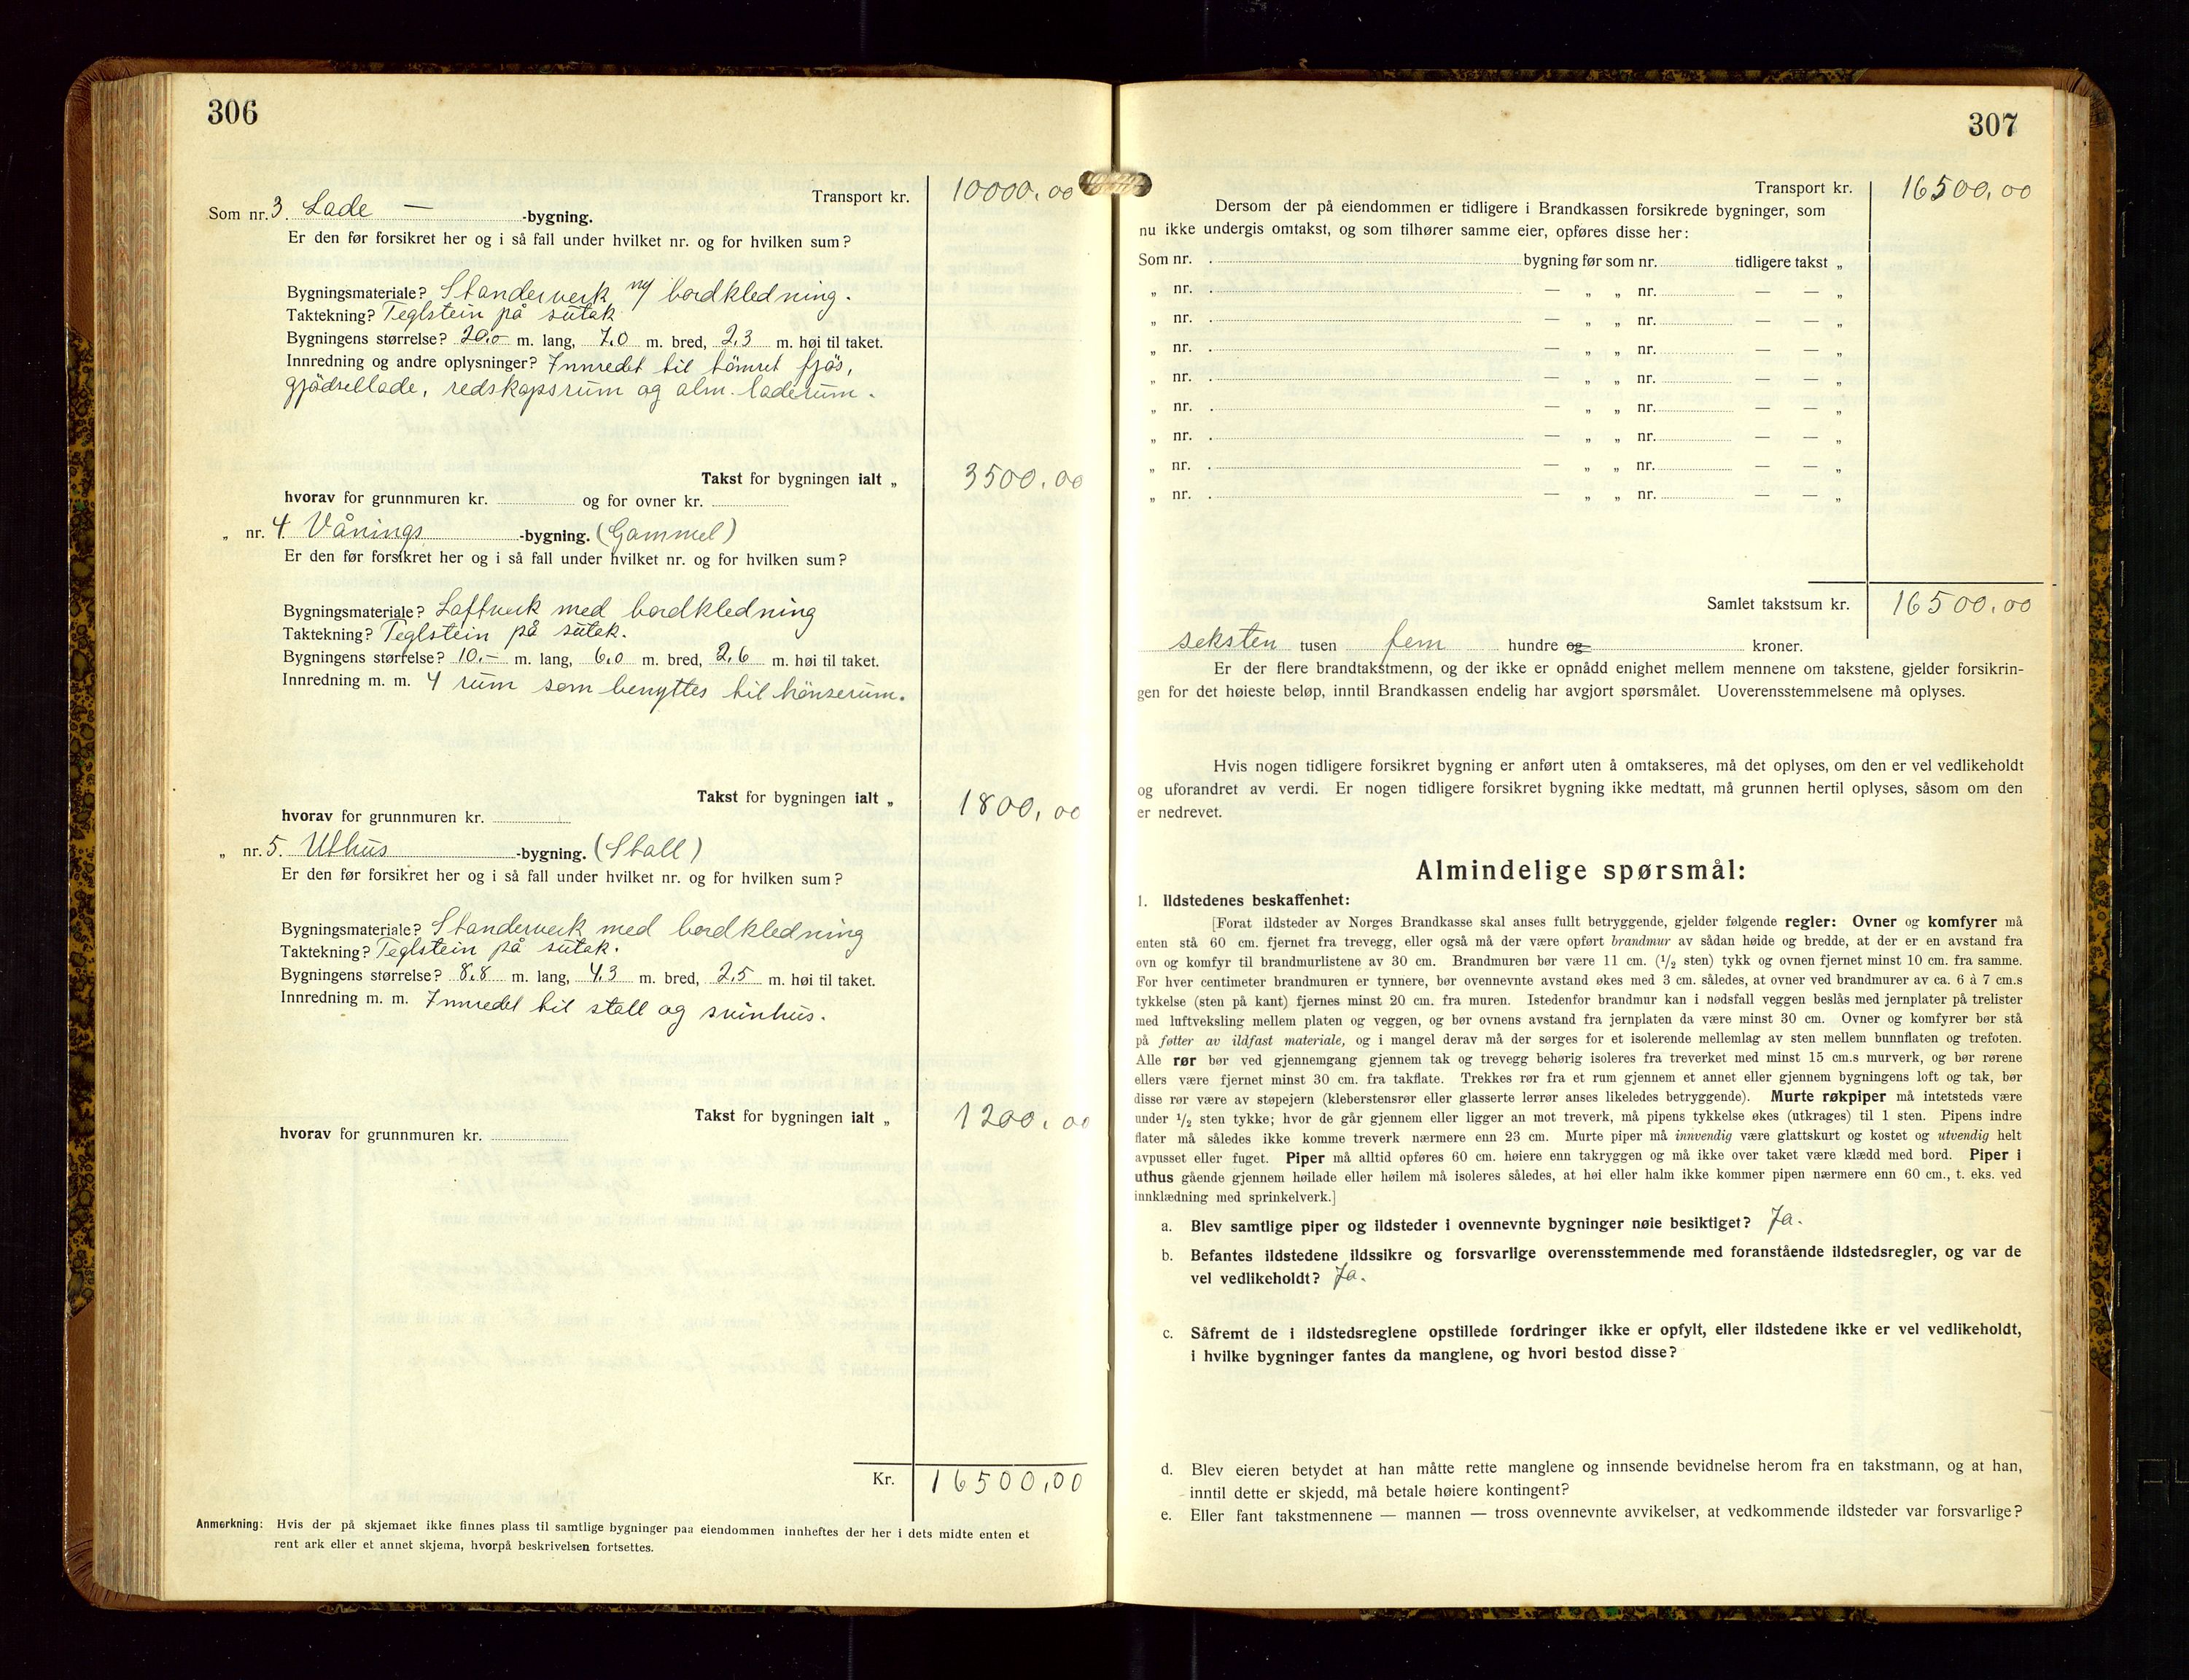 306
Transport kr. 10000,00
Som nr. 3. Lade — -bygning.
Er den før forsikret her og i så fall under hvilket nr. og for hvilken sum?
Bygningsmateriale? Standerverk m/ bordkledning.
Taktekning? Teglstein på sutak
Bygningens størrelse? 20.0 m. lang, 7.0 m. bred, 2,3 m. høi til taket.
Innredning og andre oplysninger? Innredet til tömret fjös,
gjödsellade, redskapsrum og alm. laderum.
Takst for bygningen ialt „ 3500.00
hvorav for grunnmuren kr. og for ovner kr.
„ nr. 4. Vånings -bygning. (Gammel)
Er den før forsikret her og i så fall under hvilket nr. og for hvilken sum?
Bygningsmateriale? Laftverk med bordkledning
Taktekning? Teglstein på sutak.
Bygningens størrelse? 10.- m. lang, 6.0 m. bred, 2,6 m. høi til taket.
Innredning m. m. 4 rum som benyttes til hönserum.
Takst for bygningen ialt „ 1800,00
hvorav for grunnmuren kr.
„ nr. 5. Uthus -bygning. (Stall)
Er den før forsikret her og i så fall under hvilket nr. og for hvilken sum?
Bygningsmateriale? Standerverk med bordkledning
Taktekning? Teglstein på sutak.
Bygningens størrelse? 8.8 m. lang, 4.3 m. bred, 2.5 m. høi til taket.
Innredning m. m. Innredet til stall og svinhus.
Takst for bygningen ialt „ 1200,00
hvorav for grunnmuren kr.
Kr. 16500,00
Anmerkning: Hvis der på skjemaet ikke finnes plass til samtlige bygninger paa eiendommen innheftes der her i dets midte enten et
rent ark eller et annet skjema, hvorpå beskrivelsen fortsettes.
307
Transport kr. 16500,00
Dersom der på eiendommen er tidligere i Brandkassen forsikrede bygninger, som
nu ikke undergis omtakst, og som tilhører samme eier, opføres disse her:
Som nr. bygning før som nr. tidligere takst „
„ nr. — „ „ nr. — — „
„ nr. — „ „ nr. — — „
„ nr. — „ „ nr. — — „
„ nr. — „ „ nr. — — „
„ nr. — „ „ nr. — — „
„ nr. — „ „ nr. — — „
„ nr. — „ „ nr. — — „
„ nr. — „ „ nr. — — „
Samlet takstsum kr. 16500.00
seksten tusen fem hundre og kroner.
Er der flere brandtakstmenn, og der ikke er opnådd enighet mellem mennene om takstene, gjelder forsikrin-
gen for det høieste beløp, inntil Brandkassen endelig har avgjort spørsmålet. Uoverensstemmelsene må oplyses.
Hvis nogen tidligere forsikret bygning er anført uten å omtakseres, må det oplyses, om den er vel vedlikeholdt
og uforandret av verdi. Er nogen tidligere forsikret bygning ikke medtatt, må grunnen hertil oplyses, såsom om den
er nedrevet.
Almindelige spørsmål:
1. Ildstedenes beskaffenhet:
[Forat ildsteder av Norges Brandkasse skal anses fullt betryggende, gjelder følgende regler: Ovner og komfyrer må
enten stå 60 cm. fjernet fra trevegg, eller også må der være opført brandmur av sådan høide og bredde, at der er en avstand fra
ovn og komfyr til brandmurlistene av 30 cm. Brandmuren bør være 11 cm. (1/2 sten) tykk og ovnen fjernet minst 10 cm. fra samme.
For hver centimeter brandmuren er tynnere, bør ovennevnte avstand økes med 3 cm. således, at ovner ved brandmurer av ca. 6 à 7 cm.s
tykkelse (sten på kant) fjernes minst 20 cm. fra muren. Istedenfor brandmur kan i nødsfall veggen beslås med jernplater på trelister
med luftveksling mellem platen og veggen, og bør ovnens avstand fra jernplaten da være minst 30 cm. Ovner og komfyrer bør stå
på føtter av ildfast materiale, og i mangel derav må der sørges for et isolerende mellemlag av sten mellem bunnflaten og trefoten.
Alle rør bør ved gjennemgang gjennem tak og trevegg behørig isoleres fra treverket med minst 15 cm.s murverk, og bør rørene
ellers være fjernet minst 30 cm. fra takflate. Trekkes rør fra et rum gjennem et annet eller gjennem bygningens loft og tak, bør
disse rør være av støpejern (kleberstensrør eller glasserte lerrør anses likeledes betryggende). Murte røkpiper må intetsteds være
under 1/2 sten tykke; hvor de går gjennem eller ligger an mot treverk, må pipens tykkelse økes (utkrages) til 1 sten. Pipens indre
flater må således ikke komme treverk nærmere enn 23 cm. Murte piper må innvendig være glattskurt og kostet og utvendig helt
avpusset eller fuget. Piper må alltid opføres 60 cm. høiere enn takryggen og må ikke over taket være klædd med bord. Piper i
uthus gående gjennem høilade eller høilem må isoleres således, at høi eller halm ikke kommer pipen nærmere enn 60 cm., t. eks. ved
innklædning med sprinkelverk.]
a. Blev samtlige piper og ildsteder i ovennevnte bygninger nøie besiktiget? Ja.
b. Befantes ildstedene ildssikre og forsvarlige overensstemmende med foranstående ildstedsregler, og var de
vel vedlikeholdt? Ja.
c. Såfremt de i ildstedsreglene opstillede fordringer ikke er opfylt, eller ildstedene ikke er vel vedlikeholdt,
i hvilke bygninger fantes da manglene, og hvori bestod disse?
d. Blev eieren betydet at han måtte rette manglene og innsende bevidnelse herom fra en takstmann, og at han,
inntil dette er skjedd, må betale høiere kontingent?
e. Eller fant takstmennene — mannen — tross ovennevnte avvikelser, at vedkommende ildsteder var forsvarlige?